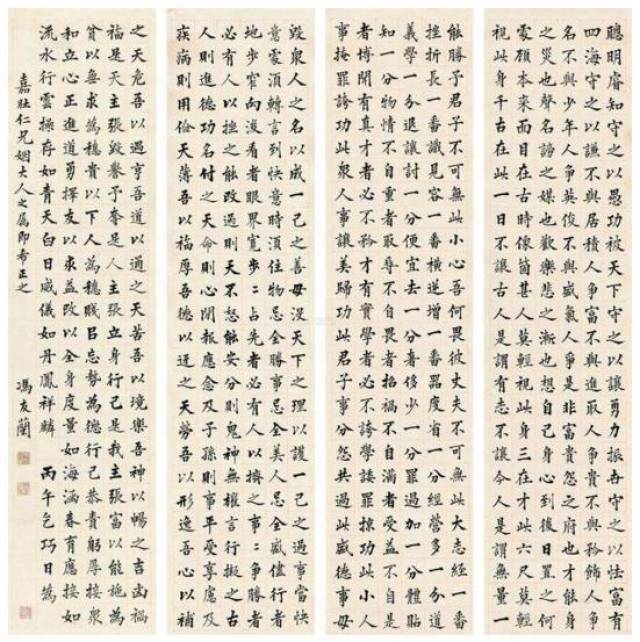 聰明睿知守之以愚功被天下守之以讓勇力振古守之以怯富有
四海守之以謙不與居積人爭富不與進取人爭貴不與矜飾人爭
名不與少年人爭英俊不與盛氣人爭是非富貴怨之府也才能身
之災也聲名謗之媒也歡樂悲之漸也想自己身心到後日置之何
處顧本來面目在古時像箇甚人莫輕視此身三在才此六尺莫輕
視此身千古在此一日不讓古人是謂有志不讓今人是謂無量一
能勝予君子不可無此小心吾何畏彼丈夫不可無此大志經一番
挫折長一番識見容一番橫逆增一番器度省一分經營多一分道
義學一分退讓討一分便宜去一分奢侈少一分罪過加一分體貼
知一分物情不自重者取辱不自畏者招禍不自滿者受益不自是
者博聞有真才者必不矜才有實學者必不誇學諉罪掠功此小人
事掩罪誇功此衆人事讓美歸功此君子事分怨共過此盛德事毋
毀衆人之名以成一己之善毋沒天下之理以護一己之過事當快
意處須轉言到快意時須住物忌全勝事忌全美人忌全盛儘行者
地步窄向後看者眼界寬步〻占先者必有人以擠之事〻爭勝者
必有人以挫之能改過則天不怒能安分則鬼神無權言行擬之古
人則進德功名付之天命則心閒報應念及子孫則事平受享慮及
疾病則用儉天薄吾以福厚吾德以迓之天勞吾以形逸吾心以補
之天危吾以遇亨吾道以通之天苦吾以境樂吾神以暢之吉凶禍
福是天主張毀譽予奪是人主張立身行己是我主張富以能施為
貧以無求為德貴以下人為德賤㠯忘勢為德行己恭責躬厚接衆
和立心正進道勇擇友以求益改以全身度量如海涵春育應接如
流水行雲操存如青天白日威儀如丹鳳祥麟 丙午乞巧日為
嘉壯仁兄姻大人之屬即希正之 馮友蘭